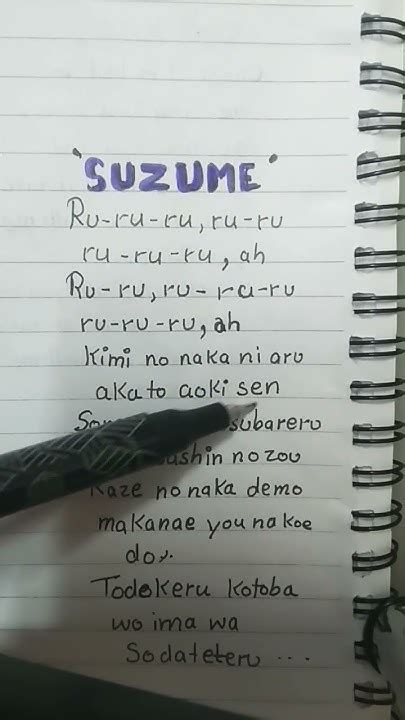 'SUZUME'
Ru-ru-ru, ru-ru
ru-ru-ru, ah
Ru-ru, ru-ru-ru
ru-ru-ru, ah
Kimi no naka ni aru
aka to aoki sen
subareru
no zou
Kaze no naka demo
makanae you na koe
de
Todokeru kotoba
wo ima wa
Sodateteru ...